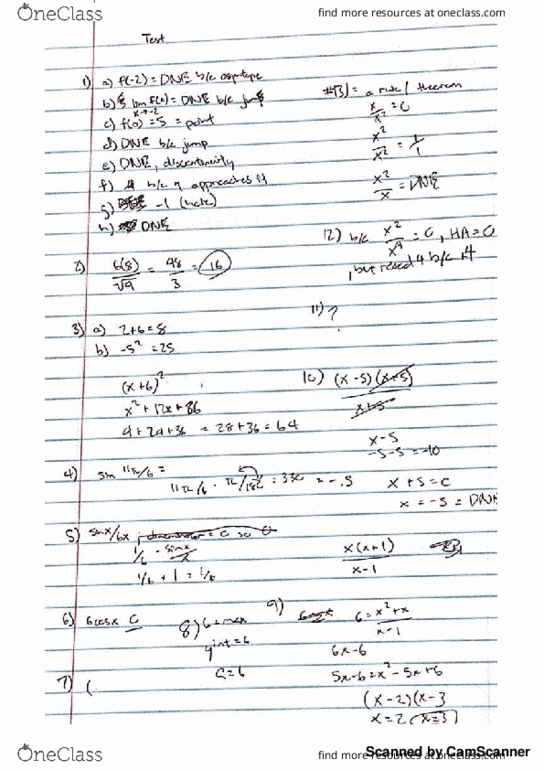 OneClass
find more resources at oneclass.com
Test
1) a) f(-2) = DNE b/c asymptote
b) lim f(x) = DNE b/c jump
x→-2
c) f(0) = 5 = point
d) DNE b/c jump
e) DNE, discontinuity
f) 4 b/c y approaches it
g) -1 (hole)
h) DNE
#13) = a rule / theorem
x/x² = 0
x²/x² = 1/1
x²/x = DNE
12) b/c x²/x⁴ = 0, HA = 0
, but raised 4 b/c +4
2) 6(8)/√9 = 48/3 = 16
11) ?
3) a) 2+6=8
b) -5² = 25
(x+6)²
x² + 12x + 36
4 + 24 + 36 = 28 + 36 = 64
10) (x-5)(x+5)
x+5
x-5
-5-5 = -10
x + 5 = 0
x = -5 = DNE
4) sin 11π/6 =
11π/6 · π/180 = 330 = -.5
5) sinx/6x
1/6 · sinx/x
1/6 + 1 = 1/6
x(x+1)
x-1
6) 6cosx
8) 6=max
yint=6
a=6
9) 6 = x²+x
x-1
6x-6
5x-6=x²-5x+6
(x-2)(x-3
x=2 (x=3)
7) (
Scanned by CamScanner
OneClass
find more resources at oneclass.com